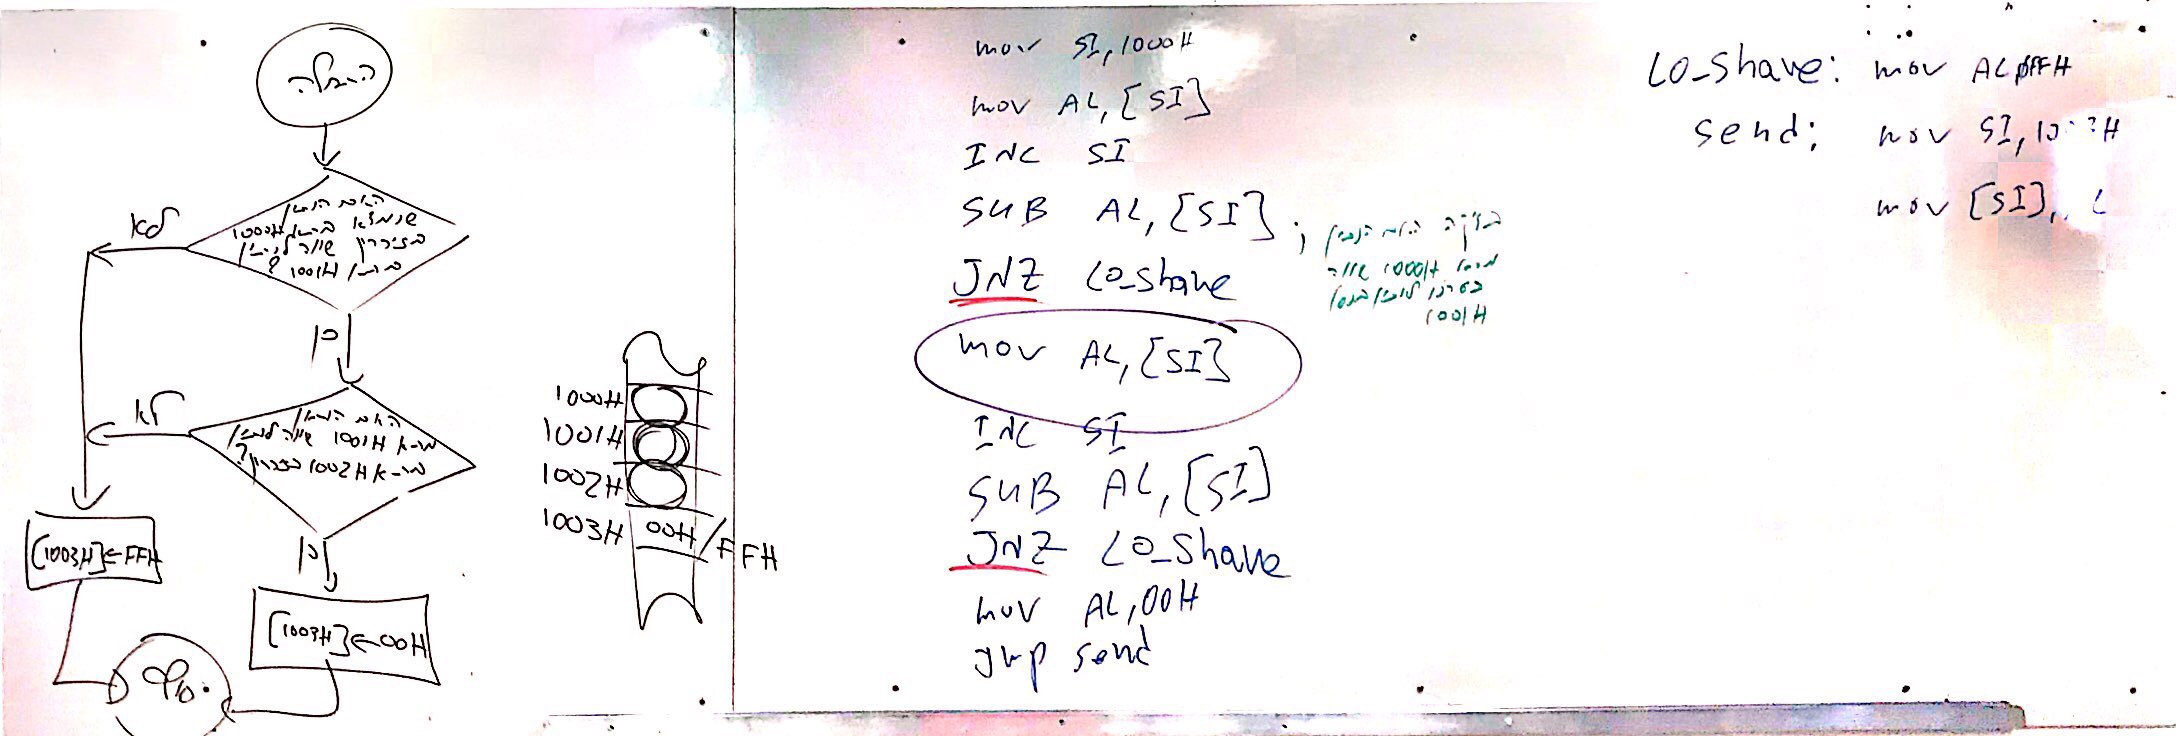 התחלה
האם התוכן
שנמצא בתא 1000H
בזיכרון שווה לתוכן
בתא 1001H ?
לא
כן
האם התוכן
1001H שווה לתוכן
1002H בזיכרון?
לא
כן
[1003H]←FFH
[1003H]←00H
סוף
1000H
1001H
1002H
1003H 00H/FFH
mov SI,1000H
mov AL,[SI]
INC SI
SUB AL,[SI] ; בדיקה האם התוכן
1000H שווה
1001H
JNZ LO_shave
mov AL,[SI]
INC SI
SUB AL,[SI]
JNZ LO_Shave
mov AL,00H
jmp send
LO_Shave: mov AL,0FFH
send: mov SI,1003H
mov [SI],